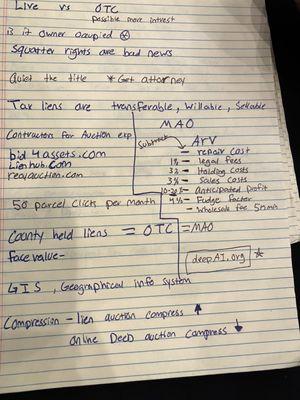 Live vs OTC
possible more intrest
is it owner ocupied
Squatter rights are bad news
Quiet the title * Get attorney
Tax liens are transferable, Willable, Sellable
MAO
Contractors for Auction exp
Subtract
ARV
bid4assets.com
- repair cost
Lienhub.com
1% - legal fees
realauction.com
3% - Holding costs
3% - Sales costs
10-20% - anticipated profit
50 parcel clicks per month
4% - Fudge factor
- Wholesale fee
County held liens = OTC
= MAO
face value-
deepAI.org *
GIS, Geographical info system
Compression - lien auction compress ↑
online Deed auction compress ↓